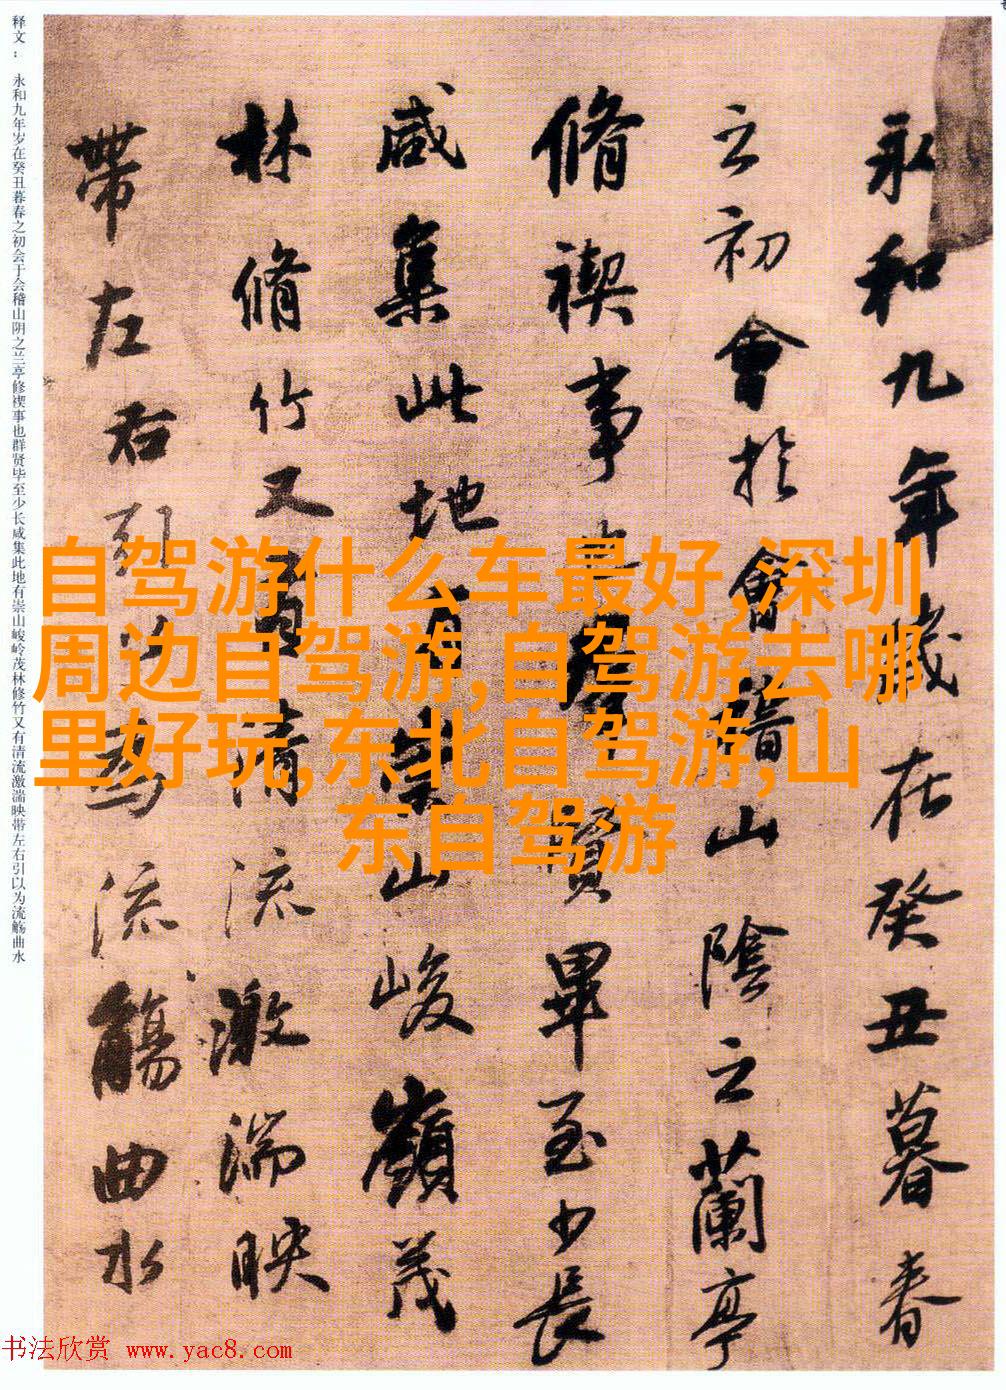 永和九年歲在癸丑暮春
之初會於會稽山陰之蘭亭
脩禊事也羣賢畢至少長
咸集此地有崇山峻嶺茂
林脩竹又有清流激湍映
帶左右引以為流觴曲水
释文： 永和九年岁在癸丑暮春之初会于会稽山阴之兰亭修禊事也群贤毕至少长咸集此地有崇山峻岭茂林修竹又有清流激湍映带左右引以为流觞曲水
自驾游什么车最好,深圳
周边自驾游,自驾游去哪
里好玩,东北自驾游,山
东自驾游
书法欣赏 www.yac8.com